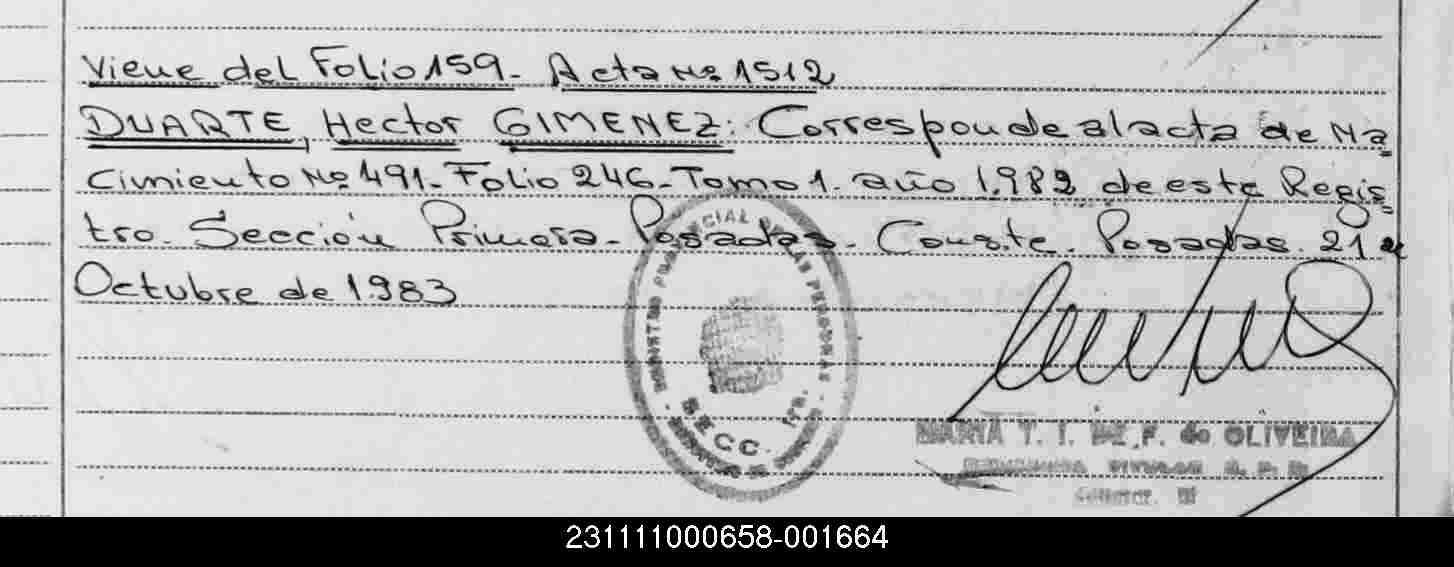 Viene del Folio 159- Acta Nº 1512
DUARTE, Hector GIMENEZ: Corresponde al acta de Na=
cimiento Nº 491- Folio 246- Tomo 1. año 1.982 de este Regis=
tro. Sección Primera- Posadas. Conste. Posadas. 21 de
Octubre de 1.983
PROVINCIAL DE LAS PERSONAS
SECC. 1ra.
MARIA T. I. DE F. de OLIVEIRA
231111000658-001664